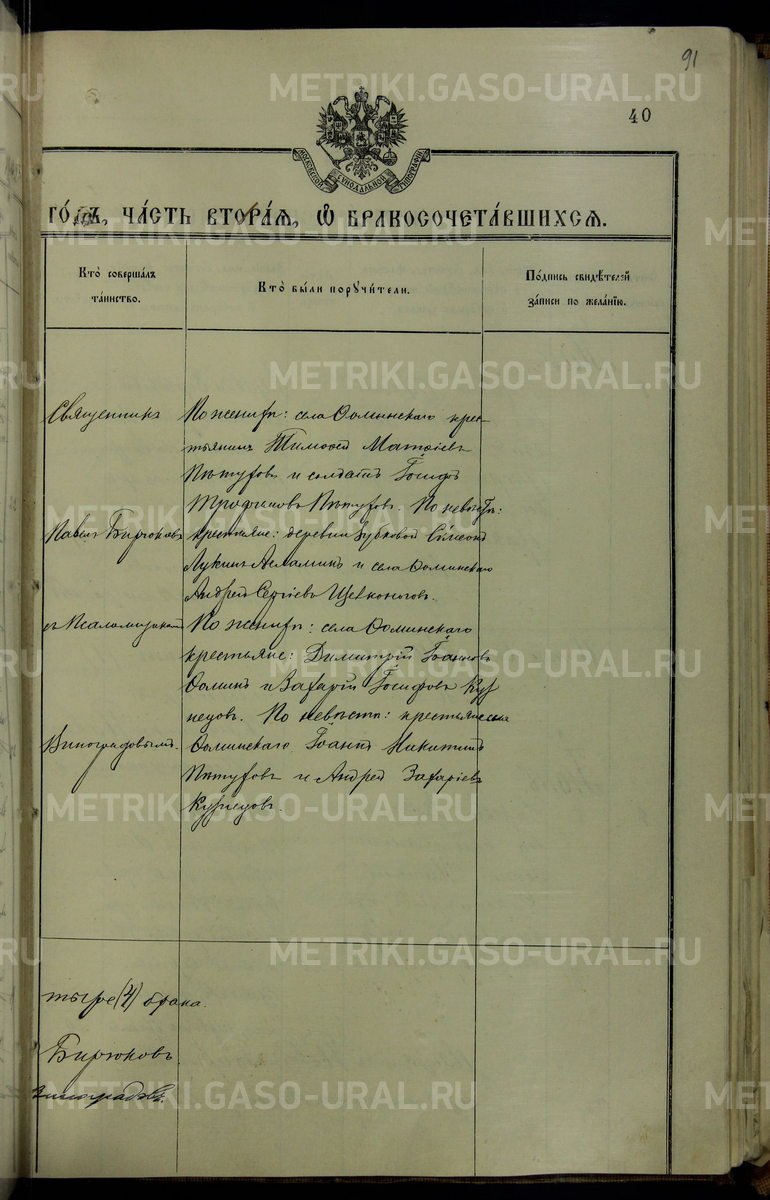 91
40
МОСКОВСКОЙ СУНОДАЛЬНОЙ ТИПОГРАФІИ
ГО́ДЪ, ЧА́СТЬ ВТОРА́Я, Ѡ БРАКОСОЧЕТА́ВШИХСЯ.
Кто̀ соверша́лъ та́инство.
Кто̀ бы́ли порꙋчи́тели.
По́дпись свидѣ́телей за́писи по жела́нїю.
Священникъ
Павелъ Бирюковъ
съ Псаломщикомъ
Виноградовымъ.
По женихѣ: села Ѳоминскаго крес-
тьянинъ Тимоѳей Матѳіевъ
Пѣтуховъ и солдатъ Іосифъ
Трофимовъ Пѣтуховъ. По невѣстѣ:
крестьяне: деревни Зубковой Симеонъ
Лукинъ и села Ѳоминскаго
Андрей Сергіевъ Щевконоговъ.
По женихѣ: села Ѳоминскаго
крестьяне: Димитрій Іоанновъ
Ѳоминъ и Захарій Іосифовъ Куз
нецовъ. По невѣстѣ: крестьяне села
Ѳоминскаго Іоаннъ Никитинъ
Пѣтуховъ и Андрей Захаріевъ
Кузнецовъ.
тыре (4) брака.
Бирюковъ
Виноградовъ.
METRIKI.GASO-URAL.RU